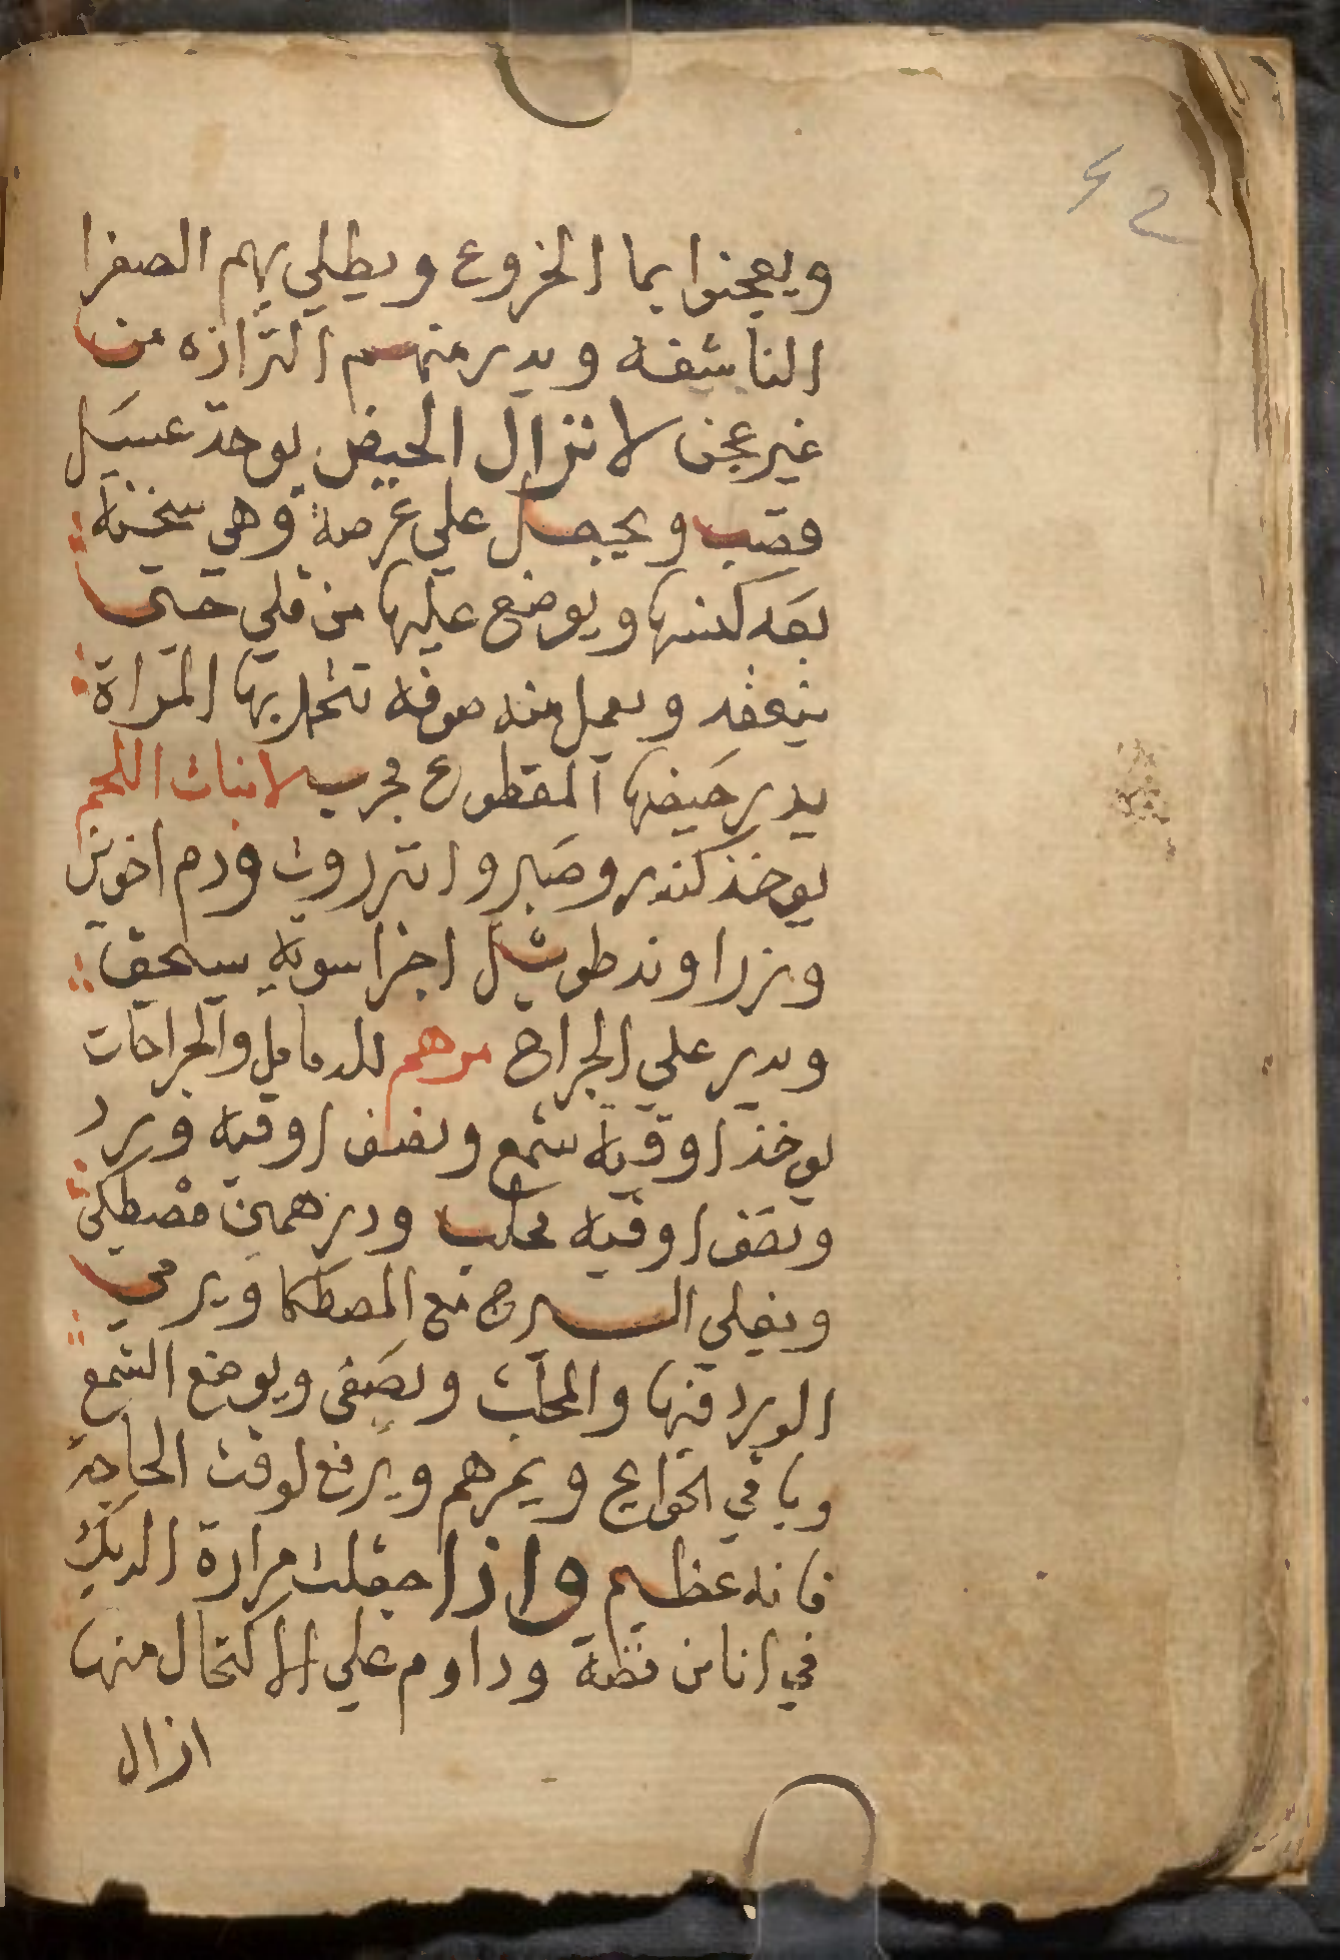 ٤٢
ويعجنوا بما الخروع ويطلي بهم الصفرا
الناشفه ويدر منهم النزازه من
غير عجن لانزال الحيض يوخذ عسل
قصب ويجعل علي عرصة وهي سخنه
بعد كنسها ويوضع عليها من قلي حتى
ينعقد ويعمل منه صوفه تتحمل بها المراة
يدر حيضها المقطوع مجرب لانبات اللحم
يوخذ كندر وصبر وانزروت ودم اخوين
وزراوند طويل اجزا سويه يسحق
ويدر علي الجراح مرهم للدمامل والجراحات
يوخذ اوقية شمع ونصف اوقيه ورد
ونصف اوقيه محلب ودرهمين مصطكى
ويغلي السيرج مع المصطكا ويرمي
الورد فيها والمحلب ويصفى ويوضع الشمع
وباقي الحوايج ويمرهم ويرفع لوقت الحاجة
فانه عظيم واذا جعلت مرارة الديك
في انا من فضة وداوم علي الاكتحال منها
ازال